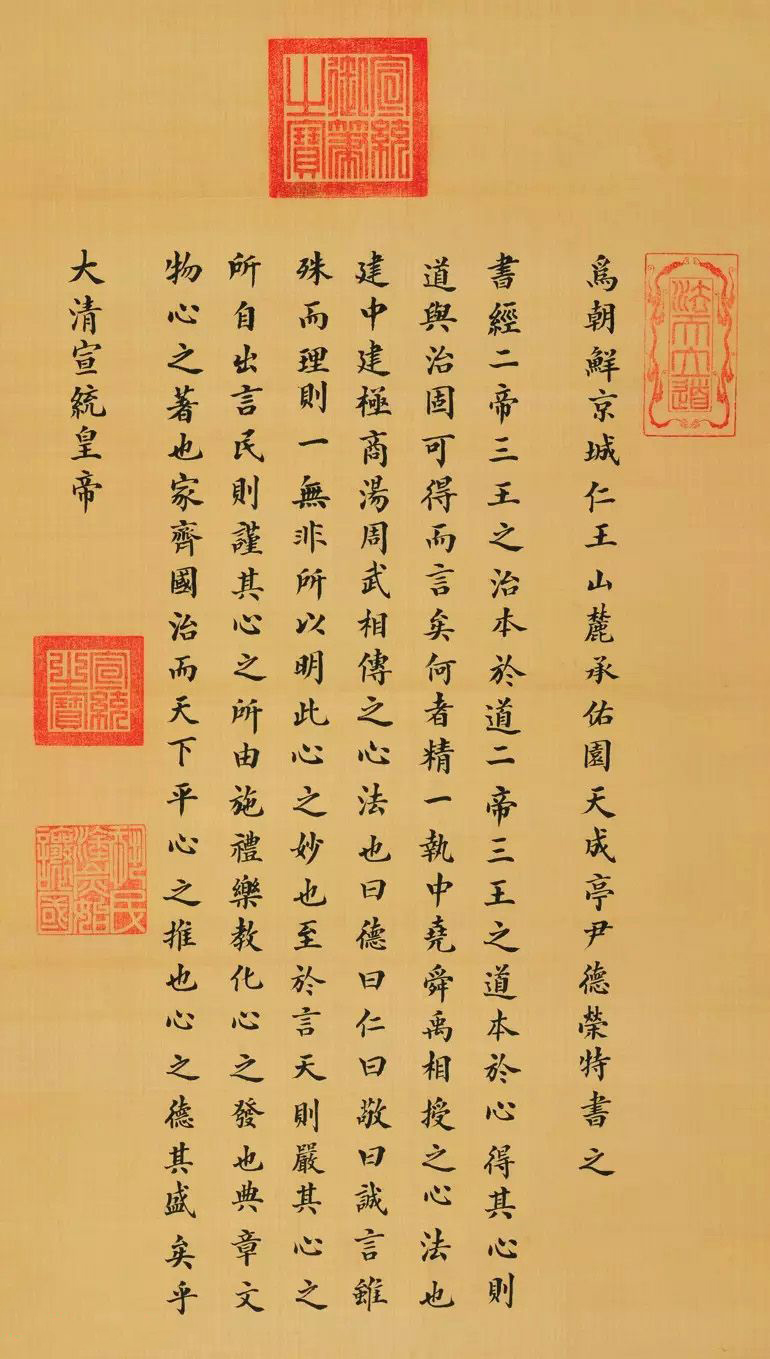 宣統御筆之寶
法天立道
爲朝鮮京城仁王山麓承佑園天成亭尹德榮特書之
書經二帝三王之治本於道二帝三王之道本於心得其心則
道與治固可得而言矣何者精一執中堯舜禹相授之心法也
建中建極商湯周武相傳之心法也曰德曰仁曰敬曰誠言雖
殊而理則一無非所以明此心之妙也至於言天則嚴其心之
所自出言民則謹其心之所由施禮樂教化心之發也典章文
物心之著也家齊國治而天下平心之推也心之德其盛矣乎
大清宣統皇帝
宣統之寶